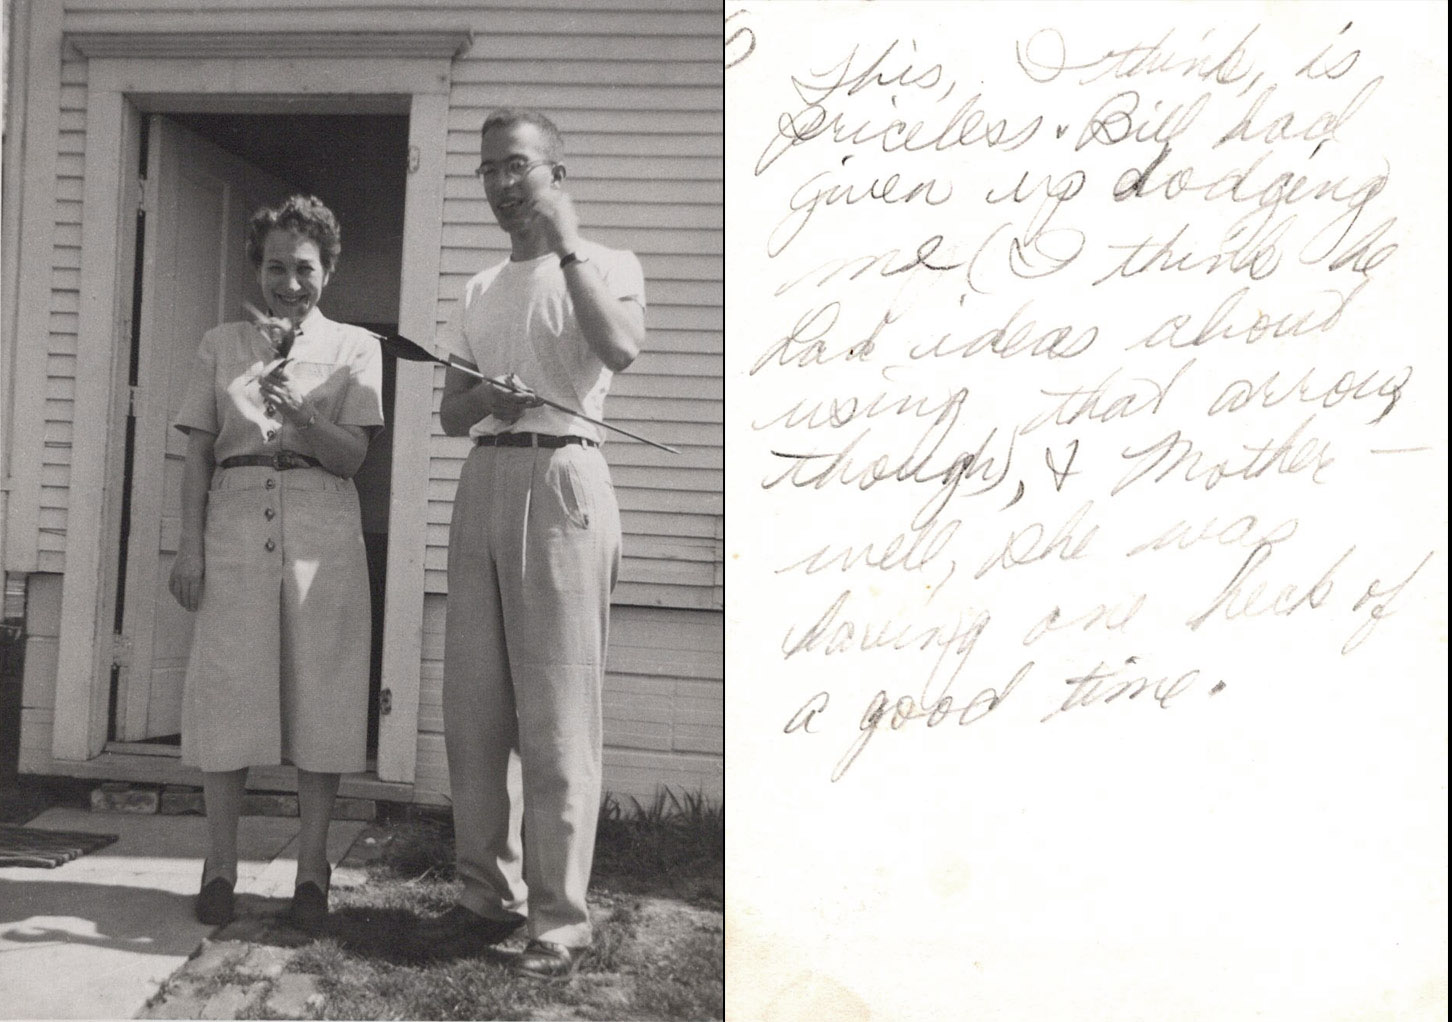 This, I think, is
priceless. Bill had
given up dodging
me (I think he
had ideas about
using that arrow,
though), & Mother —
well, she was
having one heck of
a good time.